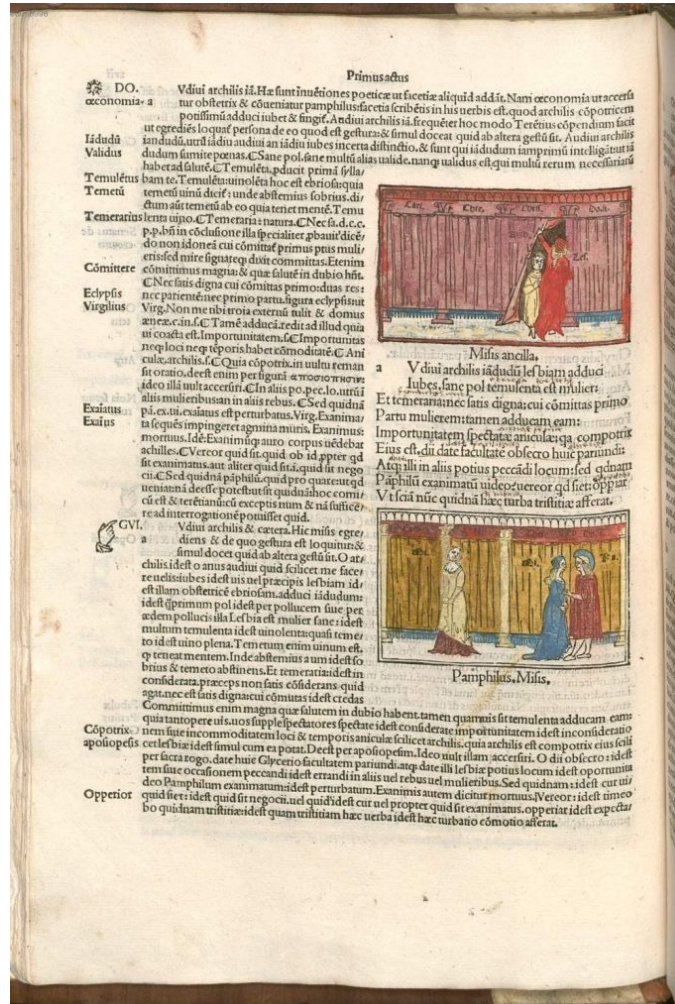 Primus actus
DO.
Vdiui archilis iā. Hæ sunt īuētiones poeticæ ut facetiæ aliquid addāt. Nam œconomia ut accersa
œconomia
a
tur obstetrix & cōueniatur pamphilus: facetia scribētis in his uerbis est. quod archilis cōpotricem
potissimū adduci iubet & fingit. Audiui archilis iā. frequēter hoc modo Terētius cōpendium facit
ut egrediēs loquat persona de eo quod est gestura: & simul doceat quid ab altera gestū sit. Audiui archilis
Iādudū
iandudū. utrū iādiu audiui an iādiu iubes incerta distinctio. & sunt qui iādudum iamprimū intelligāt ut iā
Validus
dudum sumite pœnas. ⁋Sane pol. sane multū alias ualide. nanq; ualidus est qui multū rerum necessariarū
habet ad salutē. ⁋Temulēta. pducit primā sylla/
Temulētus
bam te. Temulēta: uinolēta hoc est ebriosa: quia
Temetū
temetū uinū dicit: unde abstemius sobrius. di/
ctum aūt temetū ab eo quia tenet mentē. Temu
Temerarius
lenta uino. ⁋Temeraria: natura. ⁋Nec sa. d. c. c.
p. p. bn̄ in cōclusione illa specialiter pbauit dicē/
do non idoneā cui cōmittat primus ptus muli/
eris: sed mire signateq; dixit committas. Etenim
Cōmittere
cōmittimus magna: & quæ salutē in dubio hn̄t.
⁋Nec satis digna cui cōmittas primo: duas res:
Eclypsis
nec patientē: nec primo partu. figura eclypsis: ut
Virgilius
Virg. Non me tibi troia externū tulit & domus
æneæ. c. in. s. ⁋Tamē adducā. redit ad illud quia
ui coacta est. Importunitatem. s. ⁋Importunitas
neq; loci neq; tēporis habet cōmoditatē. ⁋Ani
culæ. archilis. s. ⁋Quia cōpotrix. in uultu reman
sit oratio. deest enim per figurā αποσιοπησιν:
ideo illā uult accersiri. ⁋In aliis po. pec. lo. utrū ī
aliis mulieribus: an in aliis rebus. ⁋Sed quidnā
Exaiatus
pā. ex. ui. exaiatus est perturbatus. Virg. Exanima/
Exaius
ta sequēs impingeret agmina muris. Exanimus:
mortuus. Idē: Exanimūq; auro corpus uēdebat
achilles. ⁋Vereor quid sit. quid ob id. ppter qd
sit exanimatus. aut aliter quid sit. i. quid sit nego
cii. ⁋Sed quidnā pāphilū. quid pro quare: ut qd
ueniat: nā deesse potest
cū est & terētianū: cū exceptis num & nā suffice/
re ad interrogationē potuisset quid.
GVI.
Vdiui archilis & cætera. Hic misis egre/
a
diens & de quo gestura est loquitur: &
simul docet quid ab altera gestū sit. O ar/
chilis idest o anus audiui quid scilicet me face/
re uelis: iubes idest uis uel præcipis lesbiam id/
est illam obstetricē ebriosam. adduci iādudum:
idest q̄primum pol idest per pollucem siue per
ædem pollucis illa Lesbia est mulier sane: idest
multum temulenta idest uinolenta: quasi teme/
to idest uino plena. Temetum enim uinum est.
q; teneat mentem. Inde abstemius a um idest so
brius & temeto abstinens. Et temeraria: idest in
considerata. præceps non satis cōsiderans quid
agat. nec est satis digna: cui cōmutas idest credas
Committimus enim magna quæ salutem in dubio habent. tamen quamuis sit temulenta adducam eam:
quia tantopere uis. uos supple spectatores spectate idest considerate importunitatem idest inconsideratio
Cōpotrix
nem siue incommoditatem loci & temporis aniculæ scilicet archilis. quia archilis est compotrix eius scili
aposiopesis
cet lesbiæ idest simul cum ea potat. Deest per aposiopesim. Ideo uult illam accersiri. O dii obsecro: idest
per sacra rogo. date huic Glycerio facultatem pariundi. atq; date illi lesbiæ potius locum idest oportunita
tem siue occasionem peccandi idest errandi in aliis uel rebus uel mulieribus. Sed quidnam: idest cur ui/
deo Pamphilum exanimatum: idest perturbatum. Exanimis autem dicitur mortuus. Vereor: idest timeo
Opperior
quid siet: idest quid sit negocii. uel quid idest cur uel propter quid sit exanimatus. opperiar idest expecta/
bo quidnam tristitiæ: idest quam tristitiam hæc uerba idest hæc turbatio cōmotio afferat.
Misis ancilla.
a
Vdiui archilis iādudū lesbiam adduci
Iubes. sane pol temulenta est mulier:
Et temeraria: nec satis digna: cui cōmittas primo
Partu mulierem: tamen adducam eam:
Importunitatem spectate aniculæ: qa compotrix
Eius est. dii date facultatē obsecro huic pariundi:
Atq; illi in aliis potius peccādi locum: sed qdnam
Pāphilū exanimatū uideo: uereor qd siet: oppiar
Vt sciā nūc quidnā hæc turba tristitiæ afferat.
Pamphilus. Misis.